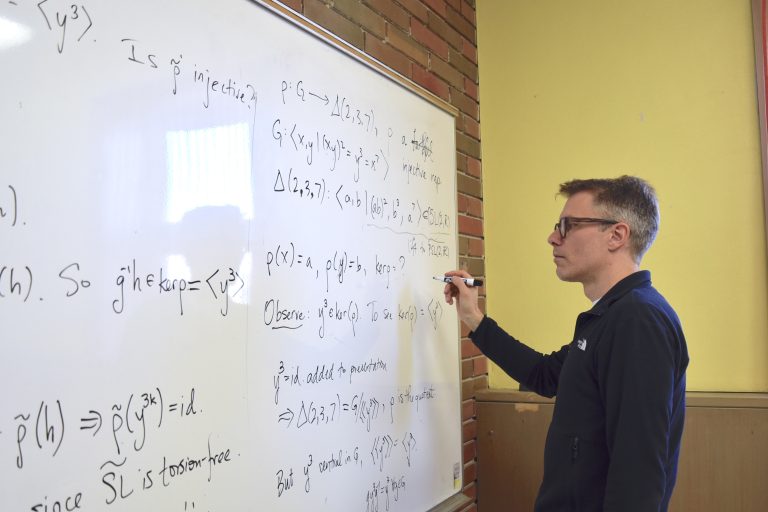 ⟨y³⟩.
Is ρ̃ injective?
h).
(h). So g⁻¹h ∈ kerρ = ⟨y³⟩
ρ̃(h) ⇒ ρ̃(y³ᵏ) = id.
since S̃L is torsion-free.
ρ: G₂ → Δ(2,3,7), ρ a
G: ⟨x,y | (xy)² = y³ = x⁷⟩ injective rep
Δ(2,3,7): ⟨a,b | (ab)², b³, a⁷⟩
ρ(x)=a, ρ(y)=b, kerρ=?
Observe: y³ ∈ ker(ρ). To see ker(ρ) = ⟨y³⟩
y³=id. added to presentation
⇒ Δ(2,3,7) = G/⟨⟨y³⟩⟩, ρ is the quotient
But y³ central in G, ⟨⟨y³⟩⟩ = ⟨y³⟩
THE NORTH FACE